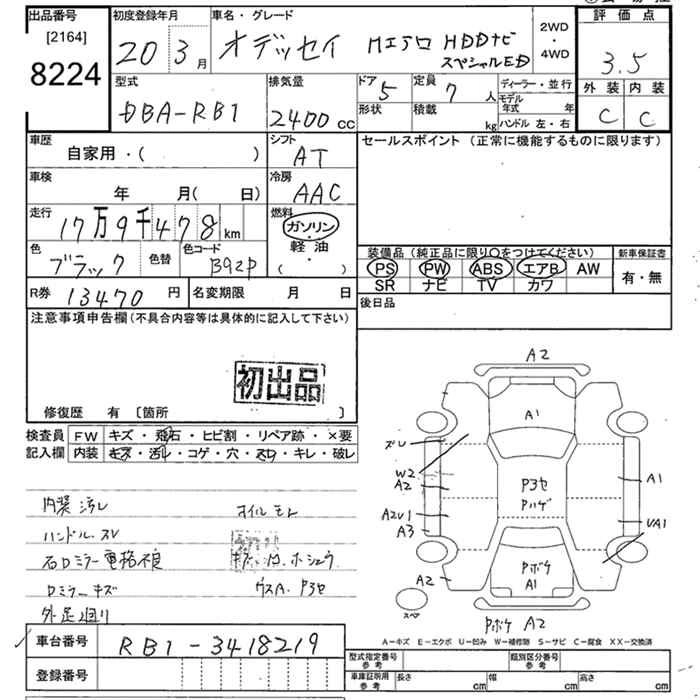 出品番号
[2164]
8224
初度登録年月
20 3月
車名・グレード
オデッセイ Mエアロ HDDナビ
スペシャルED
2WD
・
4WD
評価点
3.5
外装 内装
C C
型式
DBA-RB1
排気量
2400 cc
ドア 5
定員 7 人
形状
積載 kg
ディーラー・並行
モデル年式 年
ハンドル 左・右
車歴
自家用・( )
シフト
AT
セールスポイント (正常に機能するものに限ります)
車検
年 月( 日)
冷房
AAC
走行
17万9千478km
燃料
ガソリン
・
軽油
( )
色
ブラック
色替
色コード
B92P
装備品(純正品に限り○をつけてください)
PS PW ABS エアB AW
SR ナビ TV カワ
新車保証書
有・無
R券 13470円
名変期限 月 日
後日品
注意事項申告欄(不具合内容等は具体的に記入して下さい)
初出品
修復歴 有 〔箇所 〕
検査員
記入欄
FW キズ・飛石・ヒビ割・リペア跡・×要
内装 キズ・汚レ・コゲ・穴・スレ・キレ・破レ
内装汚レ
オイルモレ
ハンドル スレ
ミラー電格不良
ミラーキズ
外足回り
A2
A1
W2
A2
A2U1
A3
P3セ
Pハゲ
A1
UA1
A2
Pボケ
A1
スペア
Pボケ A2
A-キズ E-エクボ U-凹み W-補修跡 S-サビ C-腐食 XX-交換済
車台番号 RB1-3418219
登録番号
型式指定番号
参考
類別区分番号
参考
車庫証明用
参考
長さ cm
幅 cm
高さ cm